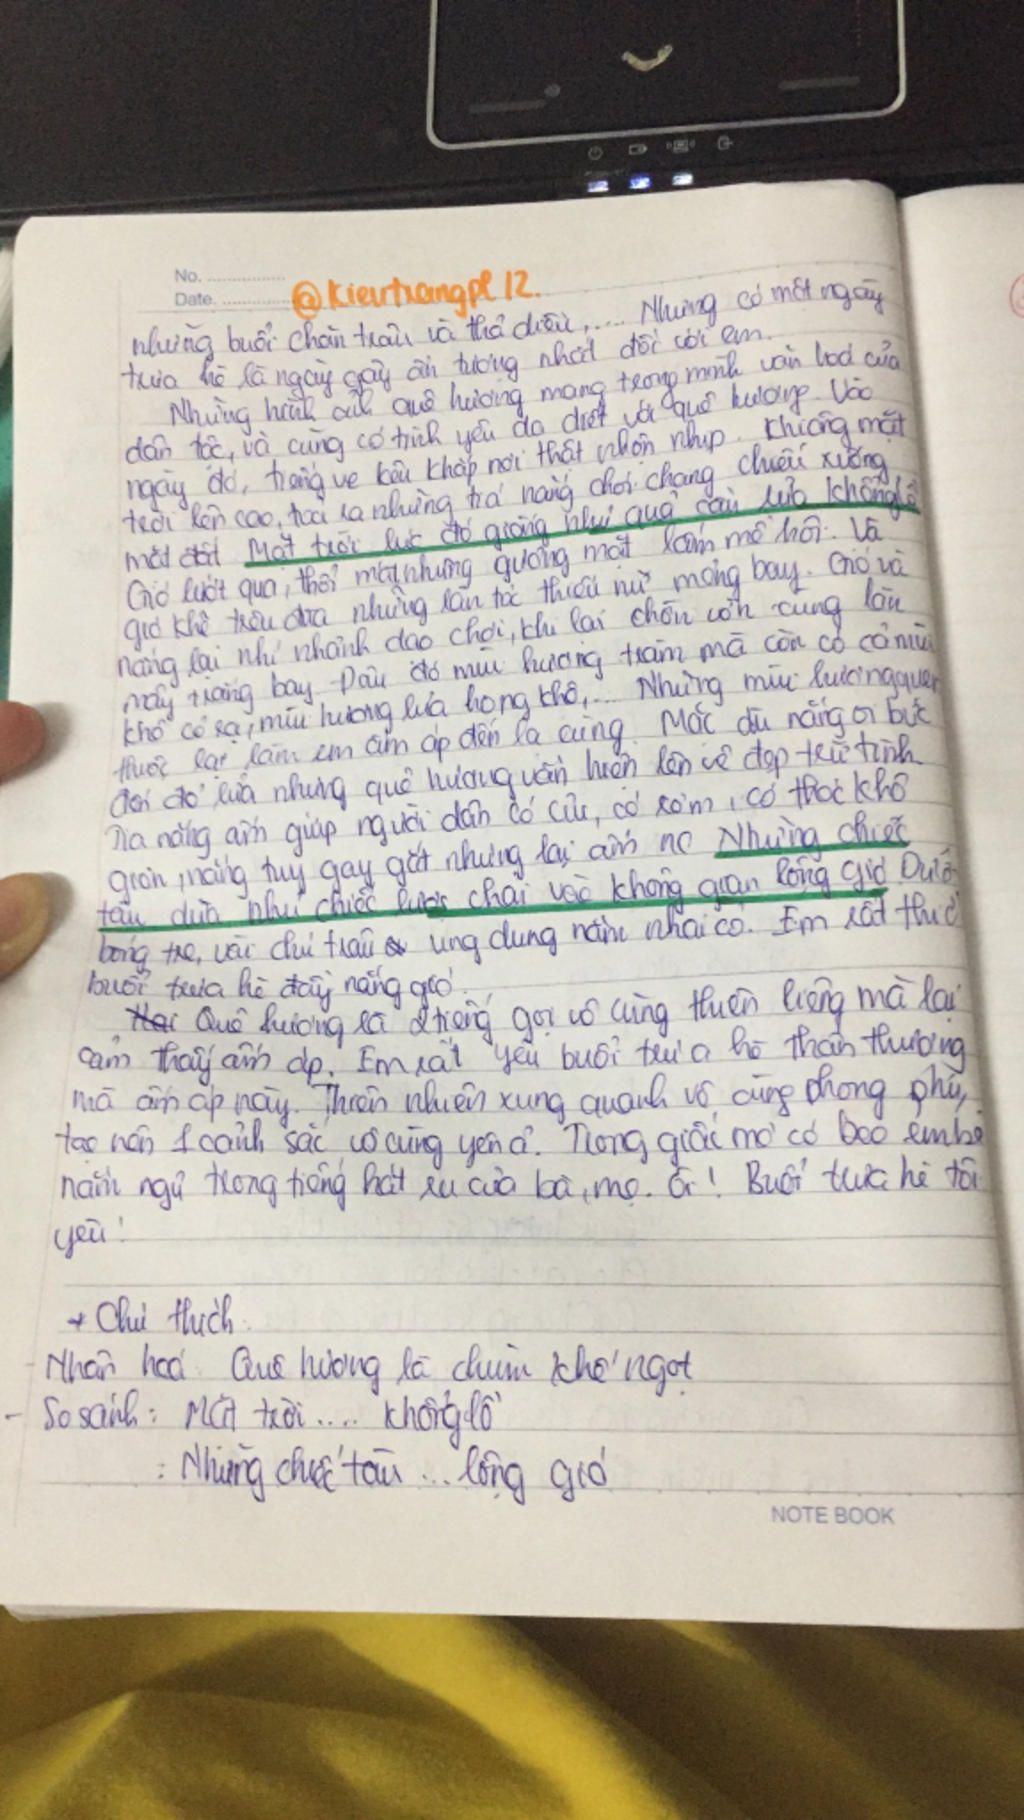 No. ................
Date. ................
@kieutrangpl12.
những buổi chăn trâu và thả diều,.... Nhưng có một ngày
trưa hè là ngày gây ấn tượng nhất đối với em.
Những hình ảnh quê hương mang trong mình văn hoá của
dân tộc, và cũng có tình yêu da diết với quê hương. Vào
ngày đó, tiếng ve kêu khắp nơi thật nhộn nhịp. Khi ông mặt
trời lên cao, toả ra những tia nắng chói chang chiếu xuống
mặt đất Mặt trời lúc đó giống như quả cầu lửa khổng lồ
Gió lướt qua, thổi mát những gương mặt lấm mồ hôi. Và
gió khẽ trêu đùa những làn tóc thiếu nữ mỏng bay. Gió và
nắng lại nhí nhảnh dạo chơi, khi lại chờn vờn cùng làn
mây trắng bay Đâu đó mùi hương tràm mà còn có cả mùi
khô cỏ rạ, mùi hương lúa hong khô,... Những mùi hương quen
thuộc lại làm em ấm áp đến lạ cùng. Mặc dù nắng oi bức
đổ lửa nhưng quê hương vẫn hiện lên vẻ đẹp trữ tình
Tia nắng ấm giúp người dân có củi, có rơm, có thóc khô
giòn, nắng tuy gay gắt nhưng lại ấm no Những chiếc
tàu dừa như chiếc lược chải vào không gian lộng gió Dưới
bóng tre, vài chú trâu ung dung nằm nhai cỏ. Em rất thích
buổi trưa hè đầy nắng gió.
Quê hương là 2 tiếng gọi vô cùng thiên liêng mà lại
cảm thấy ấm áp. Em rất yêu buổi trưa hè thân thương
mà ấm áp này. Thiên nhiên xung quanh vô cùng phong phú,
tạo nên 1 cảnh sắc vô cùng yên ả. Trong giấc mơ có bao em bé
nằm ngủ trong tiếng hát ru của bà, mẹ. Ôi! Buổi trưa hè tôi
yêu!
+ Chú thích:
- Nhân hoá: Quê hương là chùm khế ngọt
- So sánh: Mặt trời .... khổng lồ
: Những chiếc tàu ... lộng gió
NOTE BOOK